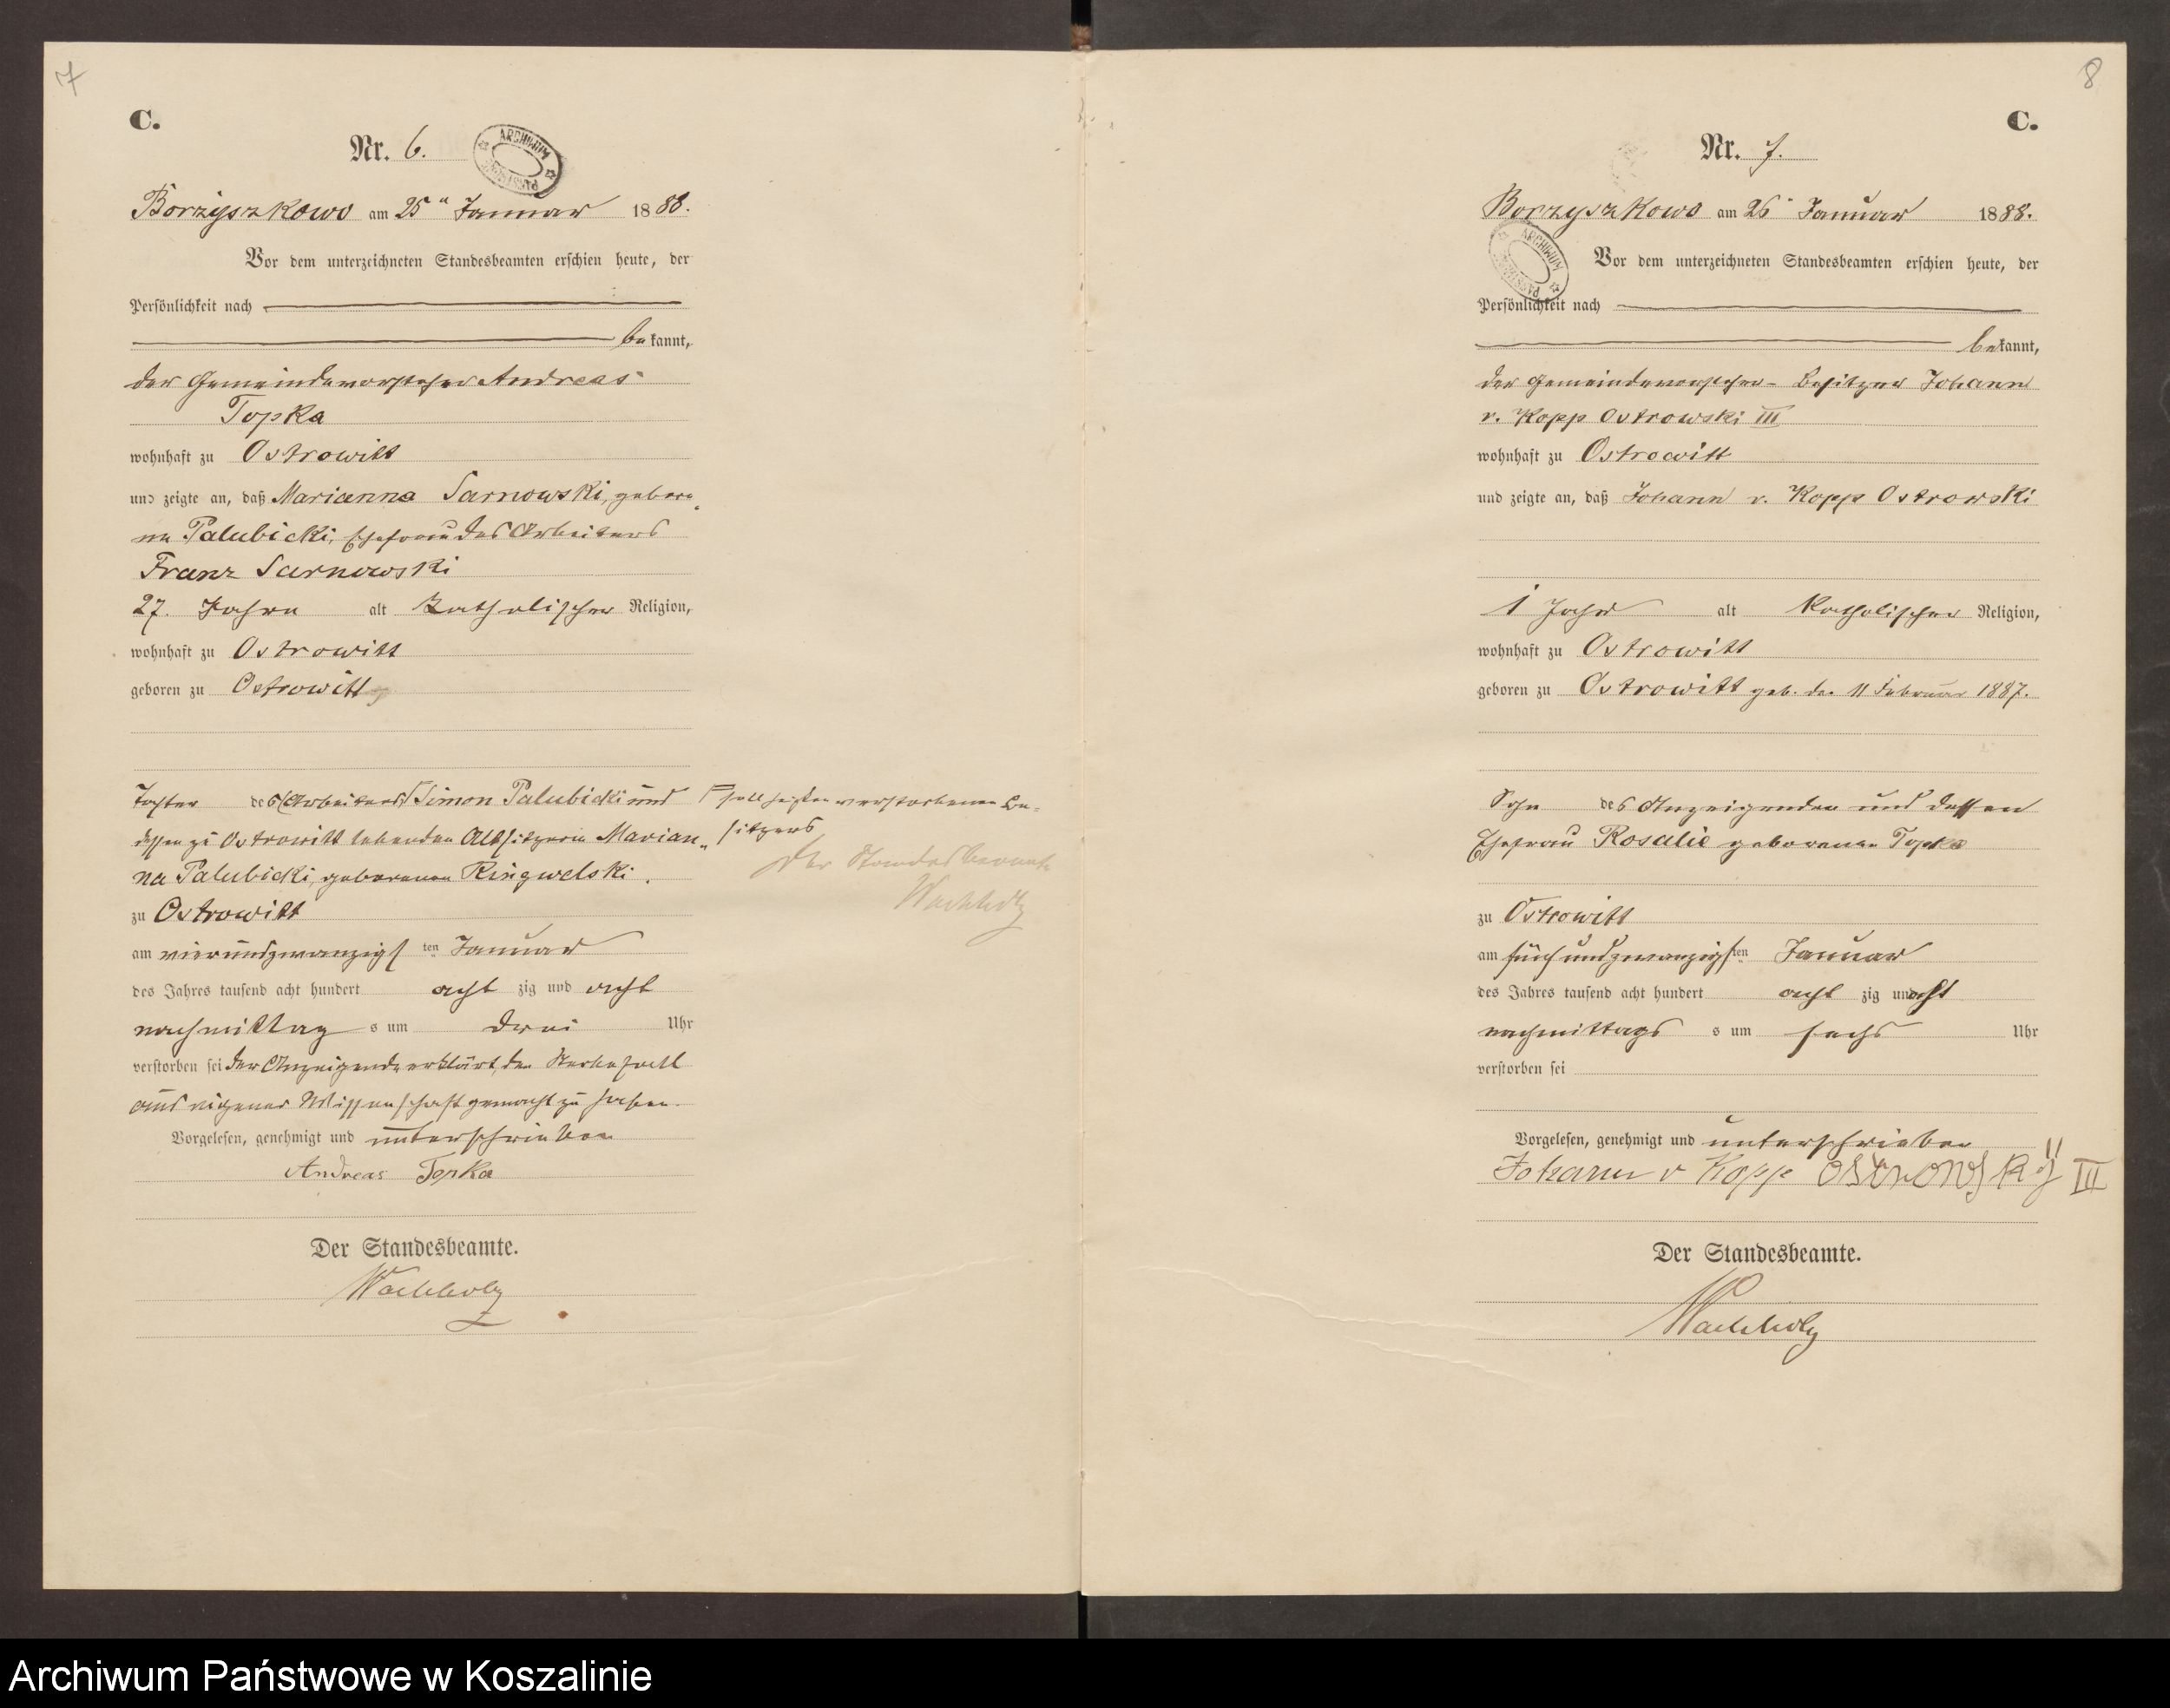 7
C.
Nr. 6.
ARCHIWUM
Borzyszkowo am 25ⁿ Januar 1888.
Vor dem unterzeichneten Standesbeamten erschien heute, der
Persönlichkeit nach
bekannt,
der Gemeindevorsteher Andreas
Topka
wohnhaft zu Ostrowitt
und zeigte an, daß Marianna Sarnowski, gebore„
ne Palubicki, Ehefrau des Arbeiters
Franz Sarnowski
27. Jahre alt katholischer Religion,
wohnhaft zu Ostrowitt
geboren zu Ostrowitt
Tochter des (Arbeiters) Simon Palubicki und
dessen zu Ostrowitt lebenden Altsitzerin Marian„
na Palubicki, geborenen Ringwelski.
zu Ostrowitt
am vierundzwanzigsten Januar
des Jahres tausend acht hundert acht zig und acht
nachmittag s um drei Uhr
verstorben sei der Anzeigende erklärt, den Sterbefall
aus eigener Wissenschaft gemacht zu haben.
Vorgelesen, genehmigt und unterschrieben
Andreas Topka
Der Standesbeamte.
Wachholz
soll heißen verstorbenen Be=
sitzers
Der Standesbeamte
Wachholz
8
C.
Nr. 7.
ARCHIWUM
Borzyszkowo am 26ⁿ Januar 1888.
Vor dem unterzeichneten Standesbeamten erschien heute, der
Persönlichkeit nach
bekannt,
der Gemeindevorsteher- Besitzer Johann
v. Kopp Ostrowski III
wohnhaft zu Ostrowitt
und zeigte an, daß Johann v. Kopp Ostrowski
1 Jahr alt katholischer Religion,
wohnhaft zu Ostrowitt
geboren zu Ostrowitt geb. den 11 Februar 1887.
Sohn des Anzeigenden und dessen
Ehefrau Rosalie geborenen Topka
zu Ostrowitt
am fünfundzwanzigsten Januar
des Jahres tausend acht hundert acht zig und acht
nachmittags s um sechs Uhr
verstorben sei
Vorgelesen, genehmigt und unterschrieben
Johann v Kopp Ostrowskÿ III
Der Standesbeamte.
Wachholz
Archiwum Państwowe w Koszalinie